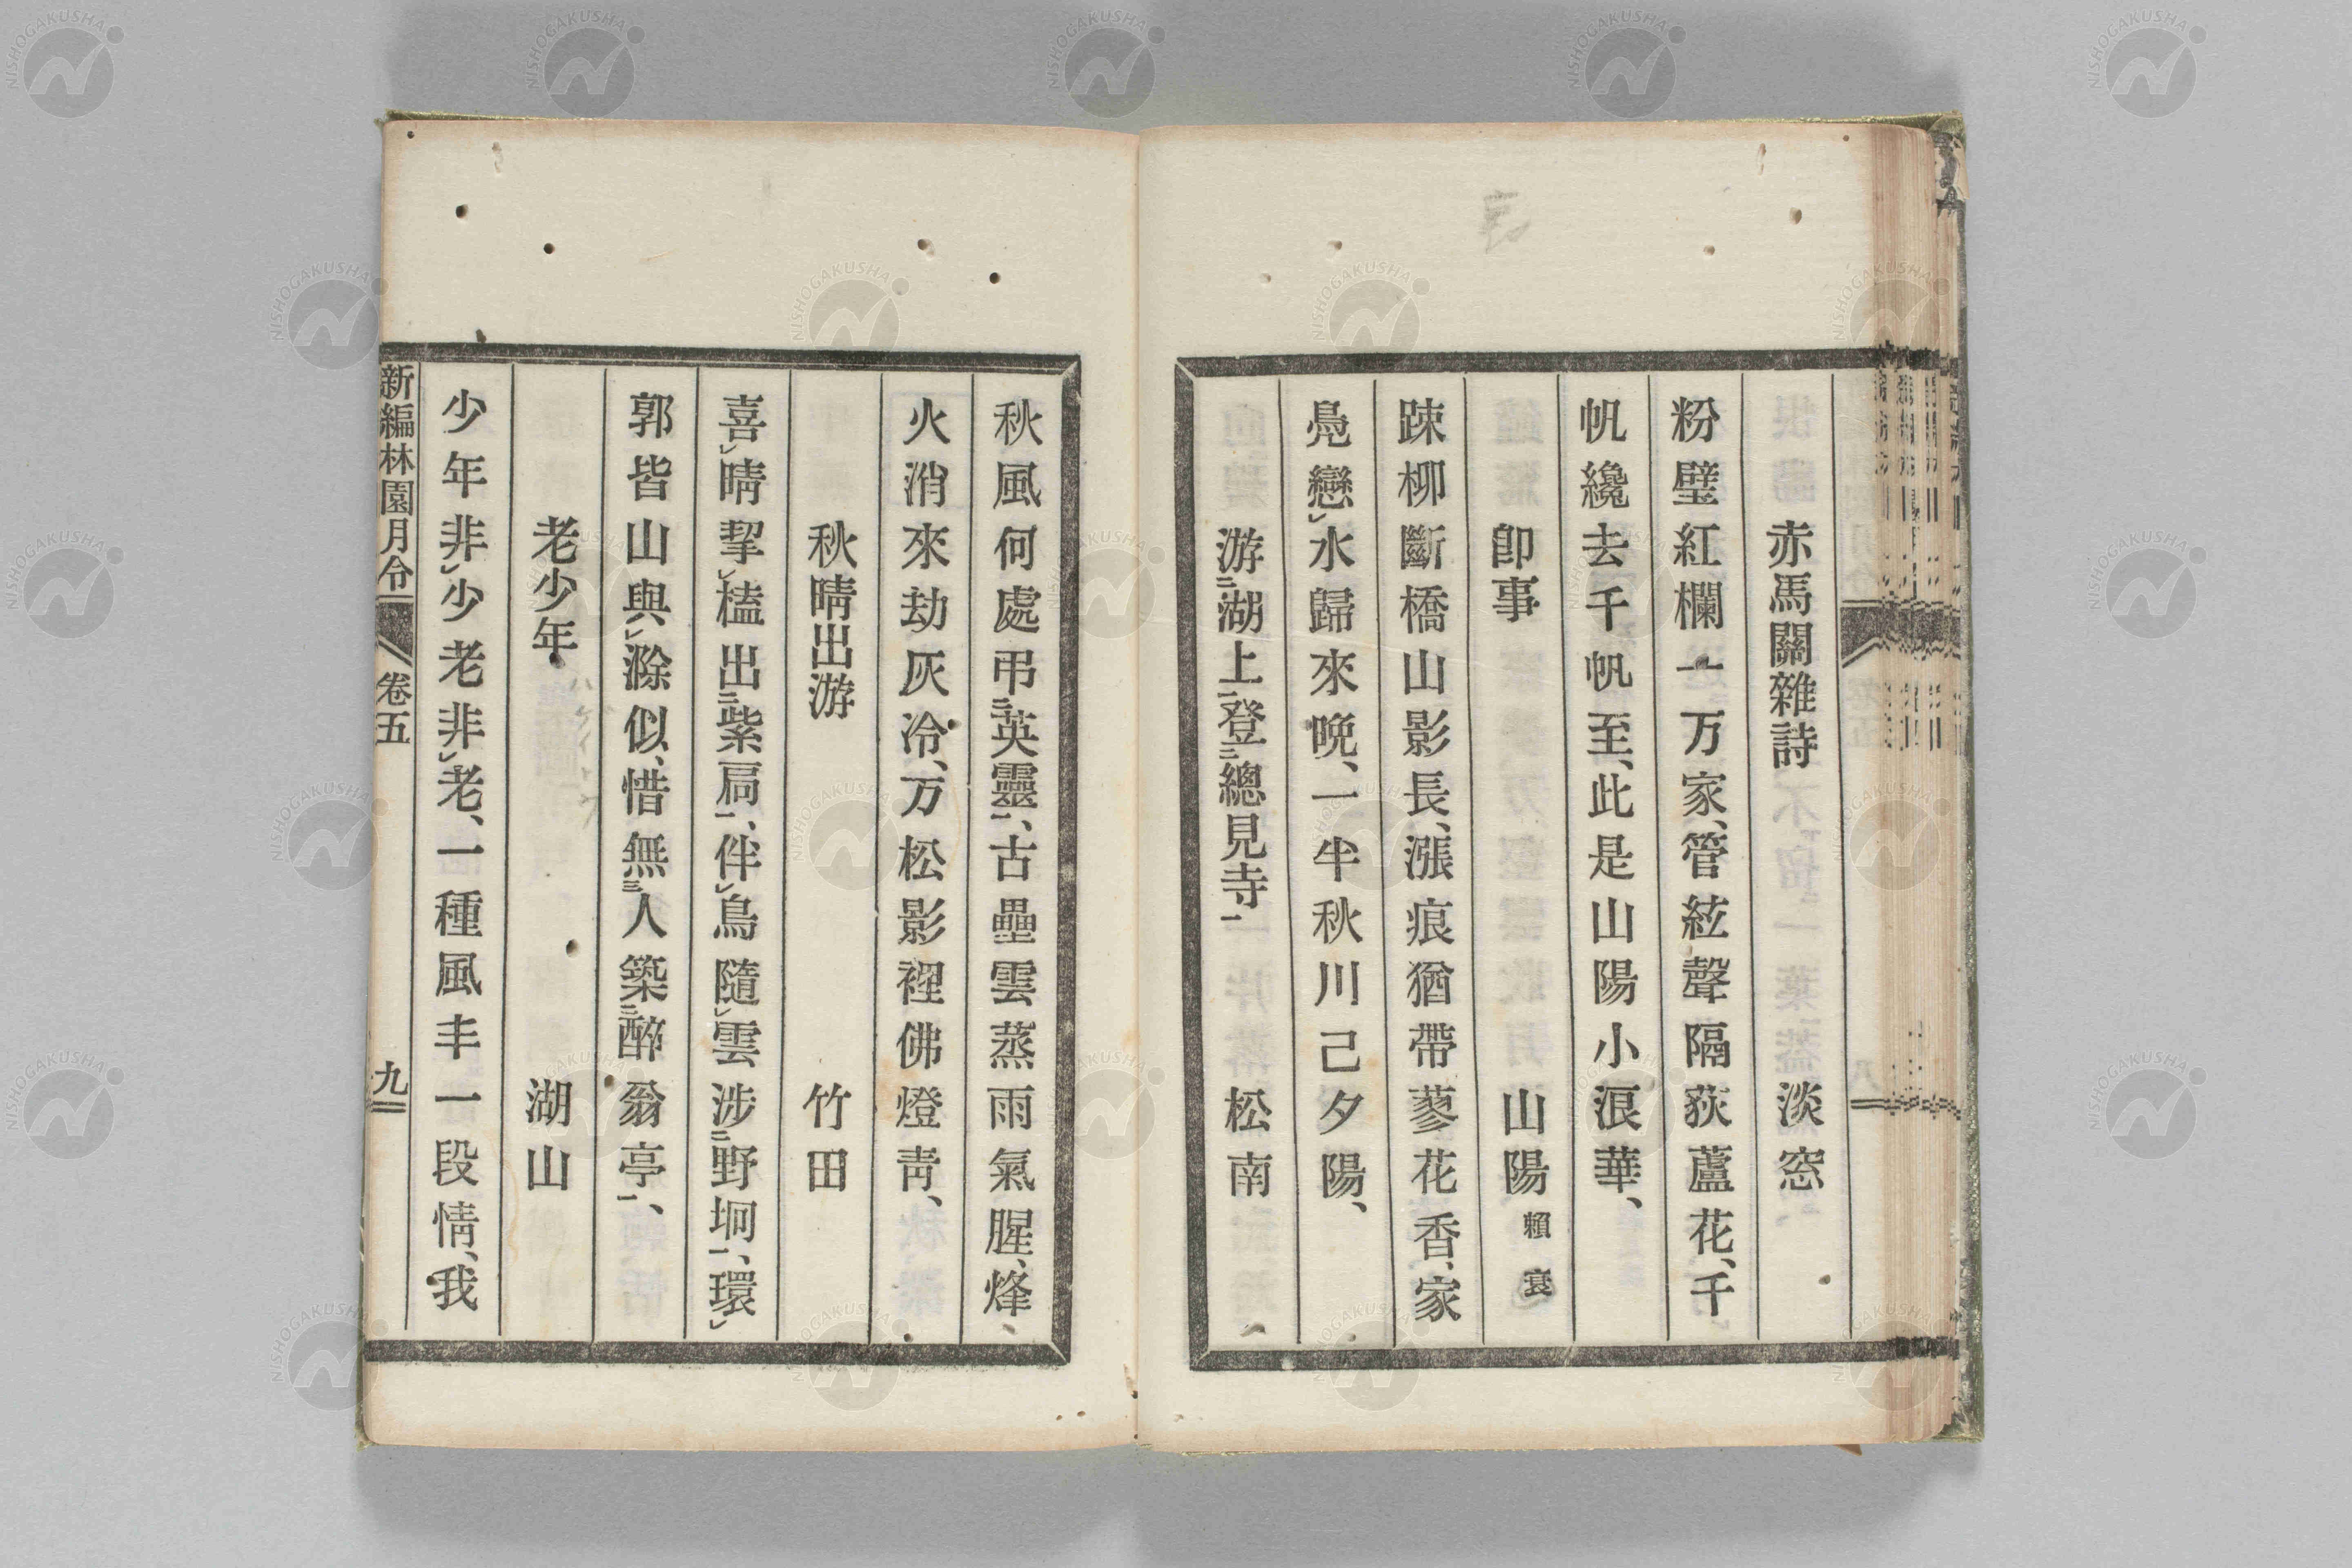 赤馬關雜詩　淡窓
粉壁紅欄一万家、管絃聲隔荻蘆花、千
帆纔去千帆至、此是山陽小浪華、
卽事　山陽 賴襄
踈柳斷橋山影長、漲痕猶帶蓼花香、家
鳧戀レ水歸來晩、一半秋川己夕陽、
游二湖上一登二總見寺一　松南
秋風何處弔二英靈一、古壘雲蒸雨氣腥、烽
火消來劫灰冷、万松影裡佛燈靑、
秋晴出游　竹田
喜レ晴挈レ榼出二紫扃一、伴レ鳥隨レ雲涉二野坰一、環レ
郭皆山與レ滁似、惜無三人築二醉翁亭一、
老少年　湖山
少年非レ少老非レ老、一種風丰一段情、我
新編林園月令　卷五　九
NISHOGAKUSHA